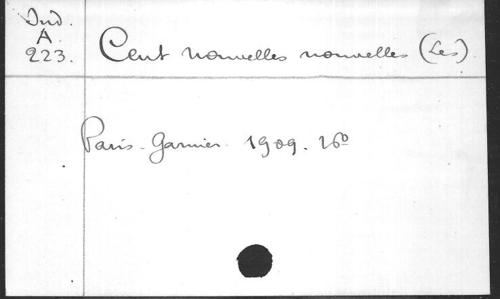 Ind.
A
223.
Cent nouvelles nouvelles (Les)
Paris - Garnier. 1909. 16º